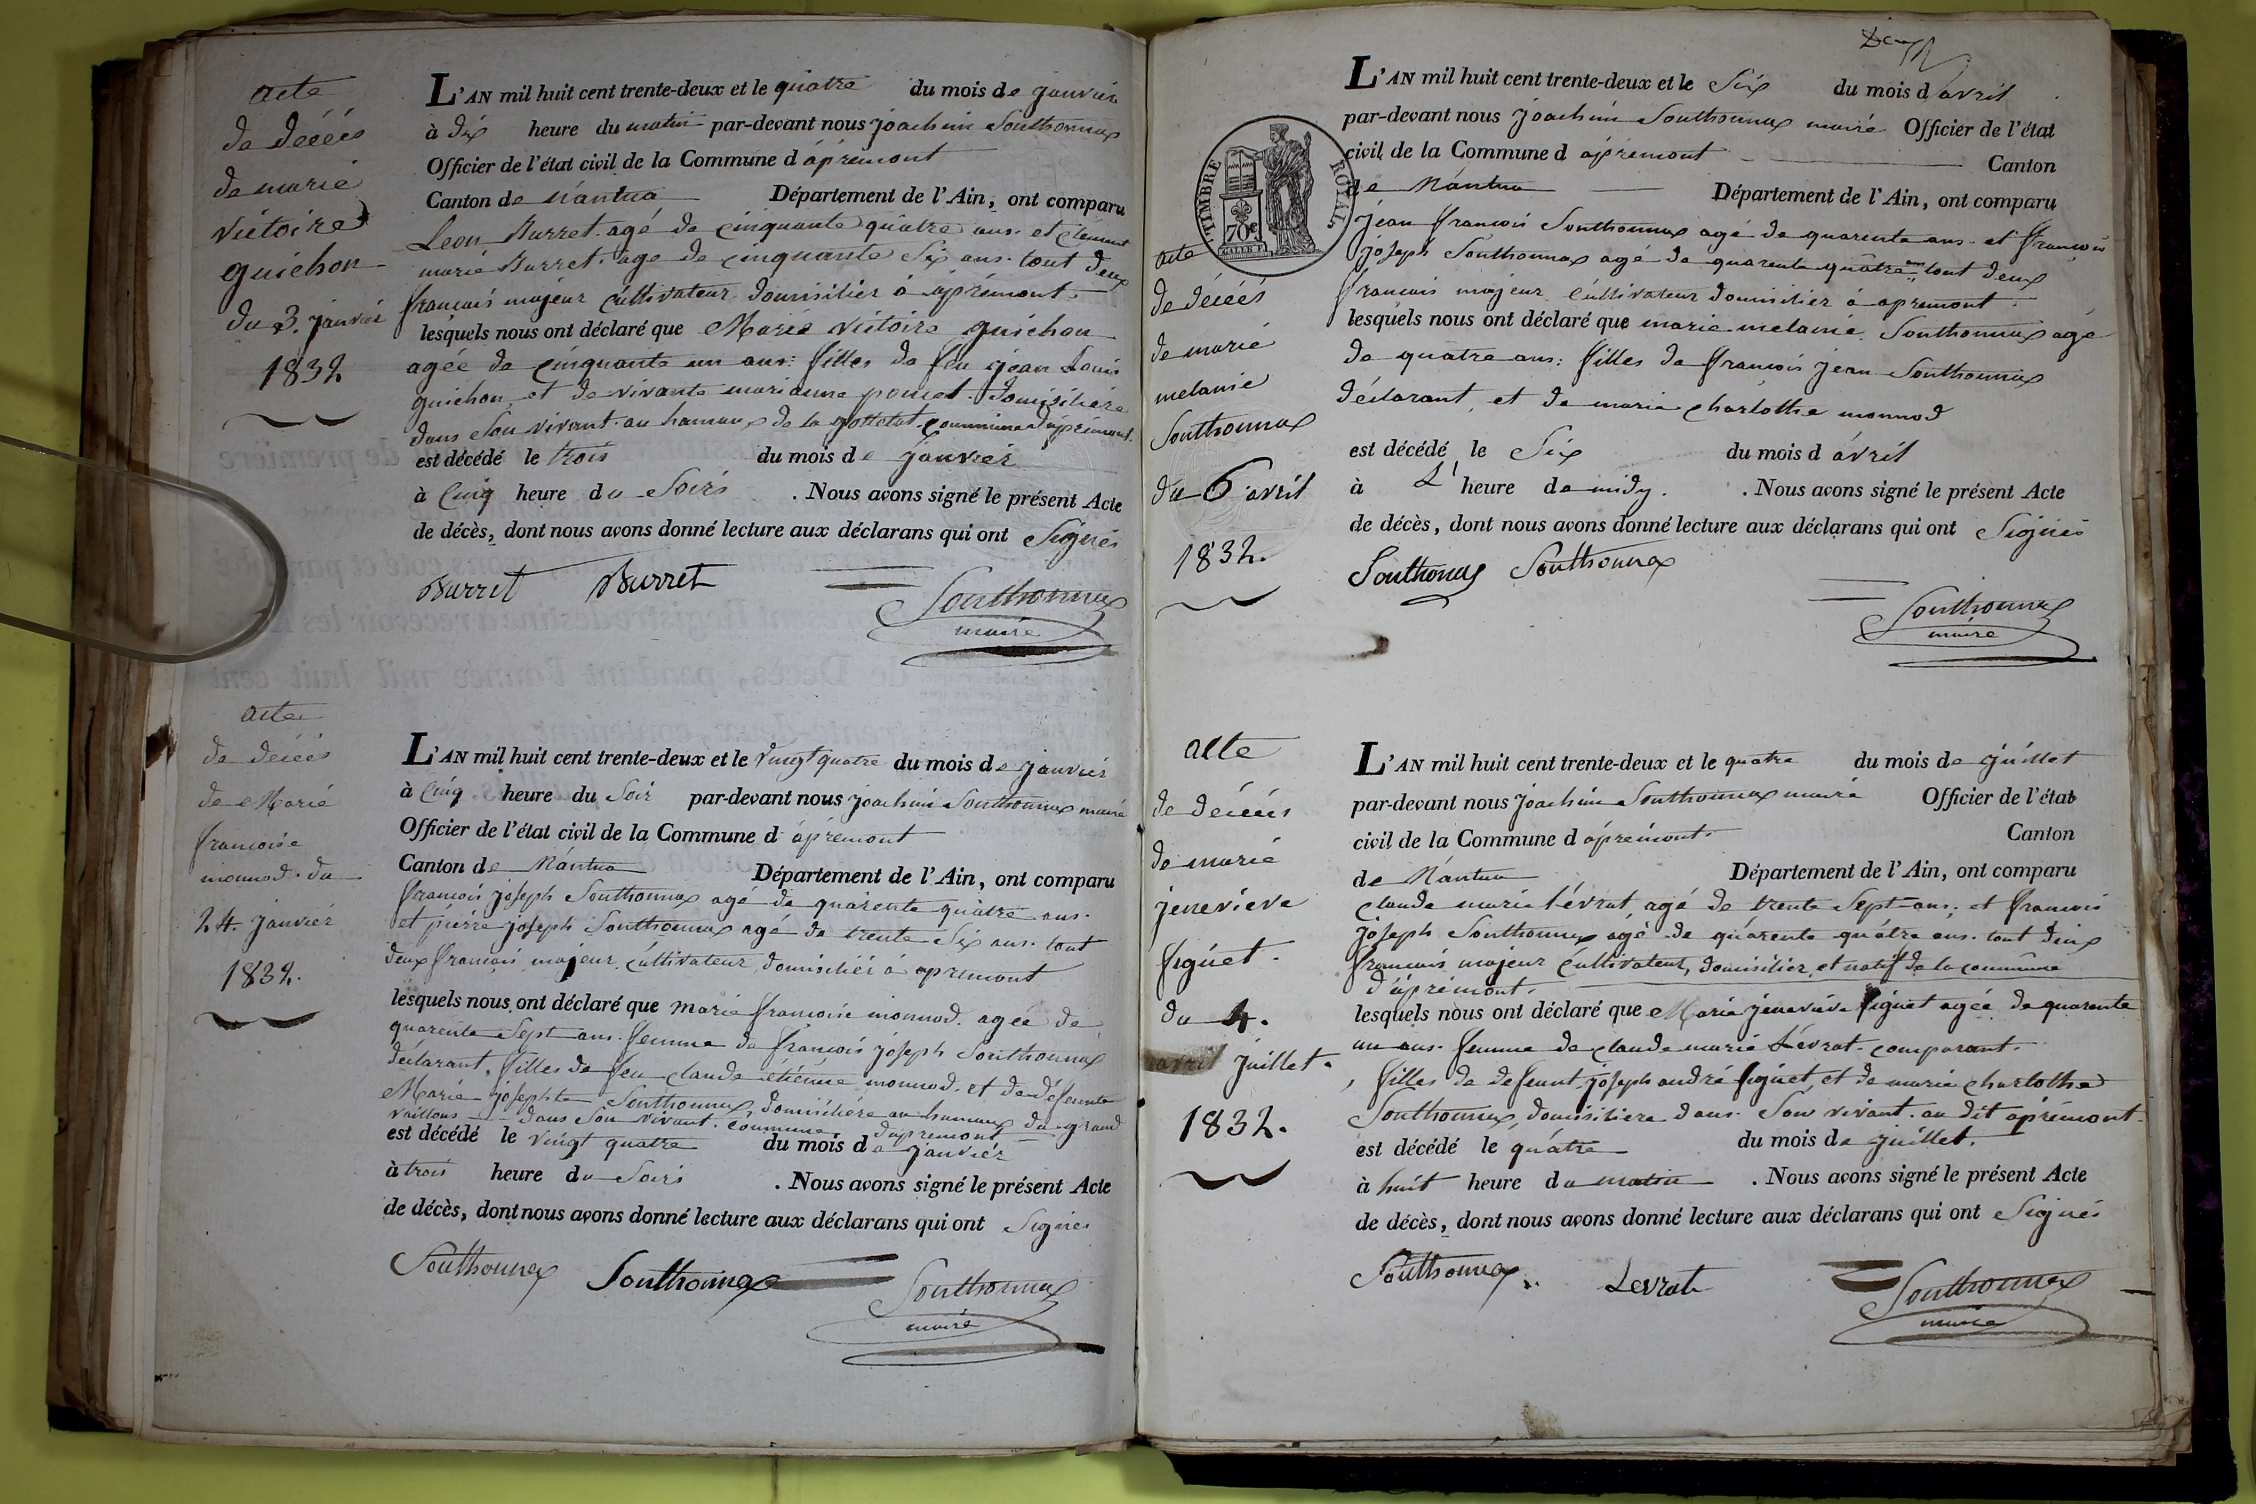 acte
de décés
de marie
victoire
guichon
du 3. janvier
1832
L'AN mil huit cent trente-deux et le quatre du mois de janvier
à dix heure du matin par-devant nous joachim Southonnax
Officier de l'état civil de la Commune d'apremont
Canton de Nantua Département de l'Ain, ont comparu
Leon Burret. agé de cinquante quatre ans. et clement
marie Burret. age de cinquante Six ans. tout deux
francais majeur cultivateur domicilier à apremont.
lesquels nous ont déclaré que Marie victoire guichon
agée de cinquante un ans: filles de feu jean Louis
guichon et de vivante marianne poncet domicilière
dans Son vivant au hamaux de la commune d'apremont.
est décédé le trois du mois de janvier
à Cinq heure du Soirs . Nous avons signé le présent Acte
de décès, dont nous avons donné lecture aux déclarans qui ont Signés
Burret Burret
Southonnax
maire
acte
de décés
de Marie
francoise
monnod. du
24. janvier
1832.
L'AN mil huit cent trente-deux et le vingt quatre du mois de janvier
à Cinq heure du Soir par-devant nous joachim Southonnax maire
Officier de l'état civil de la Commune d'apremont
Canton de Nantua Département de l'Ain, ont comparu
francois joseph Southonnax agé de quarente quatre ans.
et pierre joseph Southonnax agé de trente Six ans. tout
deux francais majeur cultivateur domicilier à apremont
lesquels nous ont déclaré que marie francoise monnod. agée de
quarente Sept ans. femme de francois joseph Southonnax
déclarant, filles de feu claude etienne monnod. et de défeunte
Marie josephte Southonnax, domicilière au hamaux du grand
vaillons dans Son vivant. commune d'apremont
est décédé le vingt quatre du mois de janvier
à trois heure du Soirs . Nous avons signé le présent Acte
de décès, dont nous avons donné lecture aux déclarans qui ont Signés
Southonnax Southonnax
Southonnax
maire
Deux
TIMBRE ROYAL
70 c
acte
de décés
de marie
melanie
Southonnax
du 6 avril
1832.
L'AN mil huit cent trente-deux et le Six du mois d'avril
par-devant nous joachim Southonnax maire Officier de l'état
civil de la Commune d'apremont Canton
de Nantua Département de l'Ain, ont comparu
jean francois Southonnax agé de quarente ans. et francois
joseph Southonnax agé de quarente quatre ans tout deux
francais majeur cultivateur domicilier à apremont.
lesquels nous ont déclaré que marie melanie Southonnax agé
de quatre ans: filles de francois jean Southonnax
déclarant, et de marie charlothe monnod
est décédé le Six du mois d'avril
à L' heure de midy. . Nous avons signé le présent Acte
de décès, dont nous avons donné lecture aux déclarans qui ont Signés
Southonax Southonnax
Southonnax
maire
acte
de décés
de marie
jenevieve
figuet.
du 4.
avril juillet.
1832.
L'AN mil huit cent trente-deux et le quatre du mois de juillet
par-devant nous joachim Southonnax maire Officier de l'état
civil de la Commune d'apremont. Canton
de Nantua Département de l'Ain, ont comparu
claude marie lévrat, agé de trente Sept ans. et francois
joseph Southonnax agé de quarente quatre ans. tout deux
francais majeur cultivateur, domicilier et natif de la commune
d'apremont.
lesquels nous ont déclaré que Marie jenevieve figuet agée de quarente
un ans. femme de claude marie Lévrat. comparant.
, filles de defeunt joseph andré figuet, et de marie charlothe
Southonnax domicilière dans Son vivant. au dit apremont.
est décédé le quatre du mois de juillet.
à huit heure du matin . Nous avons signé le présent Acte
de décès, dont nous avons donné lecture aux déclarans qui ont Signés
Southonnax Levrat
Southonnax
maire